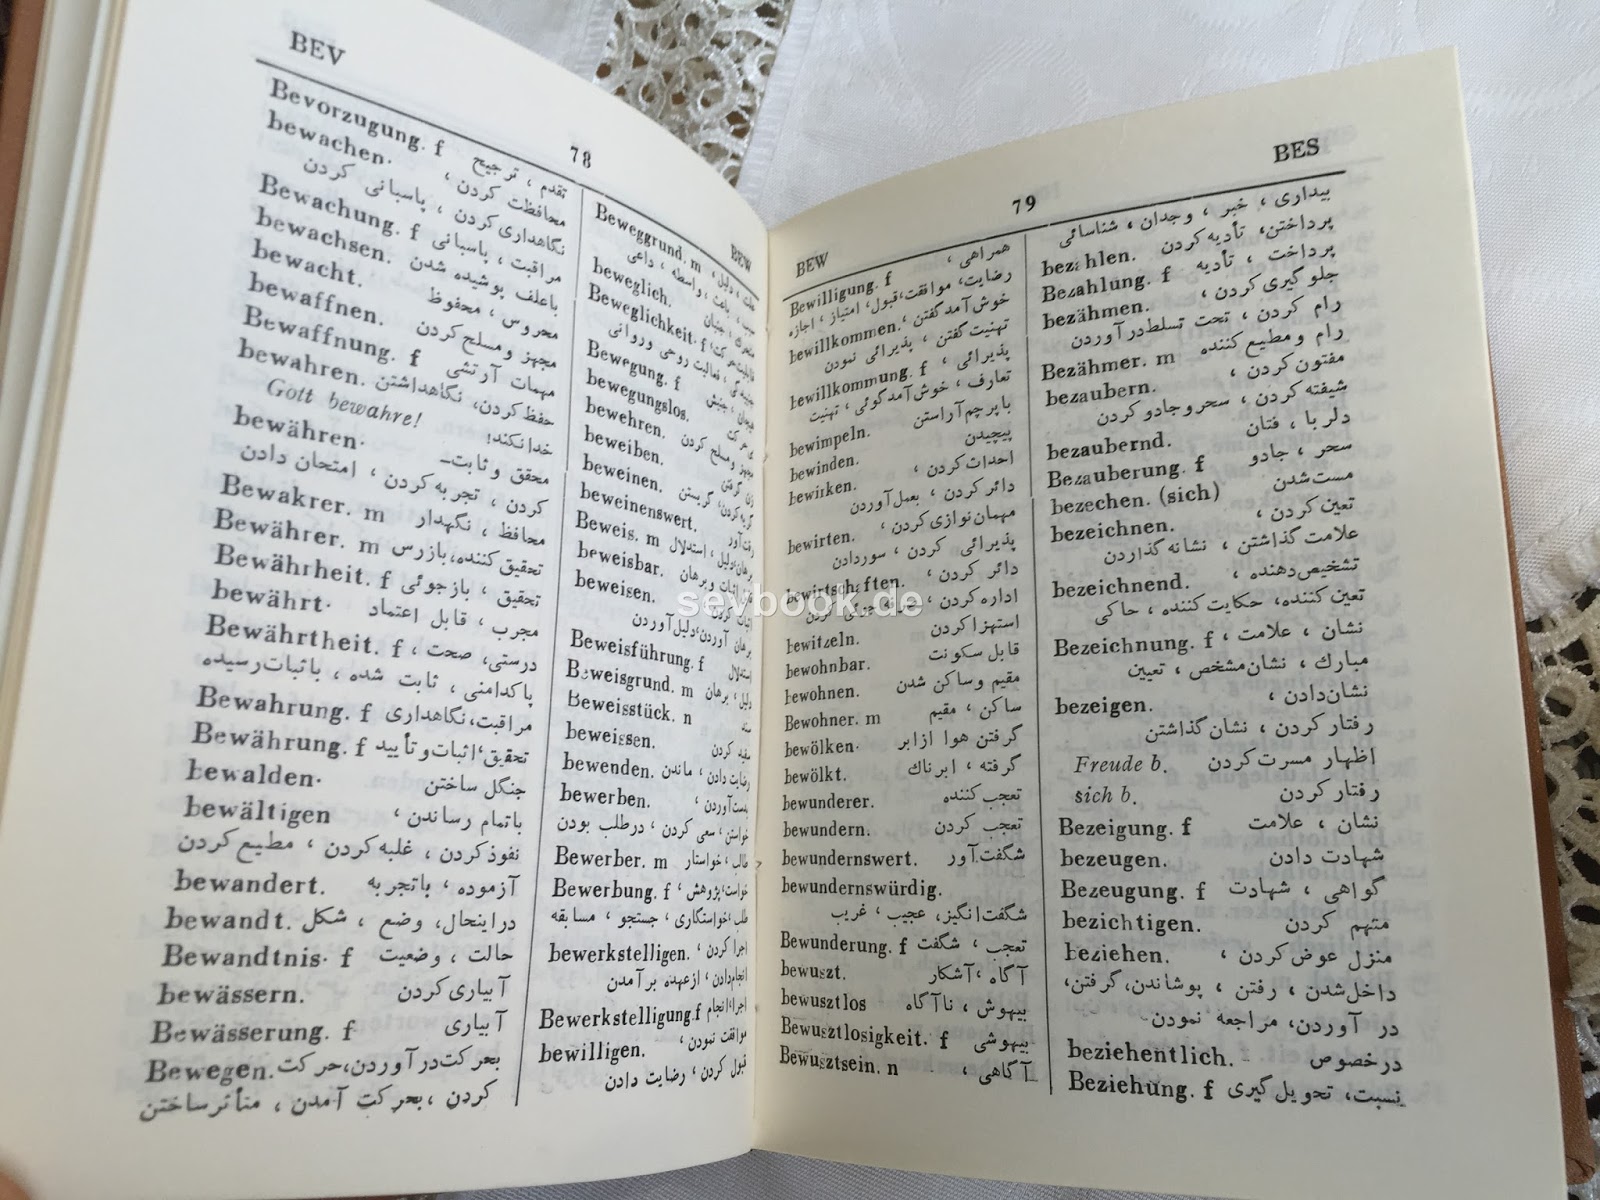 BEV
78
BEW
Bevorzugung. f تقدم ، ترجیح
bewachen. محافظت کردن ،
نگاهداری کردن ، پاسبانی کردن
Bewachung. f مراقبت ، پاسبانی
bewachsen. باعلف پوشیده شدن
bewacht. محروس ، محفوظ
bewaffnen. مجهز و مسلح کردن
Bewaffnung. f مهمات آرتشی
bewahren. حفظ کردن، نگاهداشتن
Gott bewahre! خدانکند!
bewähren. محقق و ثابت
کردن ، تجربه کردن ، امتحان دادن
Bewakrer. m محافظ ، نگهدار
Bewährer. m تحقیق کننده، بازرس
Bewährheit. f تحقیق ، بازجوئی
bewährt. مجرب ، قابل اعتماد
Bewährtheit. f درستی، صحت ،
پاکدامنی ، ثابت شده ، باثبات رسیده
Bewahrung. f مراقبت، نگاهداری
Bewährung. f تحقیق، اثبات و تأیید
bewalden. جنگل ساختن
bewältigen باتمام رساندن ،
نفوذکردن ، غلبه کردن ، مطیع کردن
bewandert. آزموده ، باتجربه
bewandt. دراینحال، وضع ، شکل
Bewandtnis. f حالت ، وضعیت
bewässern. آبیاری کردن
Bewässerung. f آبیاری
Bewegen. بحرکت درآوردن، حرکت
کردن ، بحرکت آمدن ، متأثرساختن
Beweggrund. m علت ، دلیل ،
سبب ، باعث ، واسطه ، داعی
beweglich. متحرک ، جنبان
Beweglichkeit. f قابلیت حرکت ،
فعالیت روحی و روانی
Bewegung. f جنبش ،
bewegungslos. بی حرکت
bewehren. مجهز و مسلح کردن
beweiben. زن گرفتن
beweinen. گریه کردن، گریستن
beweinenswert. رقت آور
Beweis. m برهان، دلیل ، استدلال
beweisbar. اثبات و برهان
beweisen. اثبات کردن
برهان آوردن، دلیل آوردن
Beweisführung. f استدلال
Beweisgrund. m دلیل ، برهان
Beweisstück. n سند
beweissen. سفید کردن
bewenden. رضایت دادن ، ماندن
bewerben. بدست آوردن ،
خواستن ، سعی کردن ، درطلب بودن
Bewerber. m طالب ، خواستار
Bewerbung. f خواست، پژوهش ،
طلب، خواستگاری ، جستجو ، مسابقه
bewerkstelligen. اجرا کردن ،
انجام دادن ، ازعهده برآمدن
Bewerkstelligung. f اجرا، انجام
bewilligen. موافقت نمودن ،
قبول کردن ، رضایت دادن
BEW
79
BES
همراهی ،
Bewilligung. f رضایت، موافقت، قبول، امتیاز ، اجازه
bewillkommen. خوش آمدگفتن ،
تهنیت گفتن ، پذیرائی نمودن
bewillkommung. f پذیرائی ،
تعارف ، خوش آمدگوئی ، تهنیت
bewimpeln. باپرچم آراستن
bewinden. پیچیدن
bewirken. احداث کردن ،
دائر کردن ، بعمل آوردن
bewirten. مهمان نوازی کردن ،
پذیرائی کردن ، سوردادن
bewirtschaften. دائر کردن ،
اداره کردن ، جوئی کردن
bewitzeln. استهزا کردن
bewohnbar. قابل سکونت
bewohnen. مقیم وساکن شدن
Bewohner. m ساکن ، مقیم
bewölken. گرفتن هوا ازابر
bewölkt. گرفته ، ابرناك
bewunderer. تعجب کننده
bewundern. تعجب کردن
bewundernswert. شگفت آور
bewundernswürdig.
شگفت انگیز، عجیب ، غریب
Bewunderung. f تعجب ، شگفت
bewuszt. آگاه ، آشکار
bewusztlos بیهوش ، ناآگاه
Bewusztlosigkeit. f بیهوشی
Bewusztsein. n آگاهی ،
بیداری ، خبر ، وجدان ، شناسائی
bezahlen. پرداختن، تأدیه کردن
Bezahlung. f پرداخت ، تأدیه
bezähmen. جلوگیری کردن ،
رام کردن ، تحت تسلط درآوردن
Bezähmer. m رام و مطیع کننده
bezaubern. مفتون کردن ،
شیفته کردن ، سحر و جادو کردن
bezaubernd. دلربا ، فتان
Bezauberung. f سحر ، جادو
bezechen. (sich) مست شدن
bezeichnen. تعیین کردن ،
علامت گذاشتن ، نشانه گذاردن
bezeichnend. تشخیص دهنده ،
تعیین کننده، حکایت کننده ، حاکی
Bezeichnung. f نشان ، علامت ،
مبارك ، نشان مشخص ، تعیین
bezeigen. نشان دادن ،
رفتار کردن ، نشان گذاشتن
Freude b. اظهار مسرت کردن
sich b. رفتار کردن
Bezeigung. f نشان ، علامت
bezeugen. شهادت دادن
Bezeugung. f گواهی ، شهادت
bezichtigen. متهم کردن
beziehen. منزل عوض کردن ،
داخل شدن ، رفتن ، پوشاندن، گرفتن،
در آوردن، مراجعه نمودن
beziehentlich. درخصوص
Beziehung. f نسبت، تحویل گیری
sevbook.de